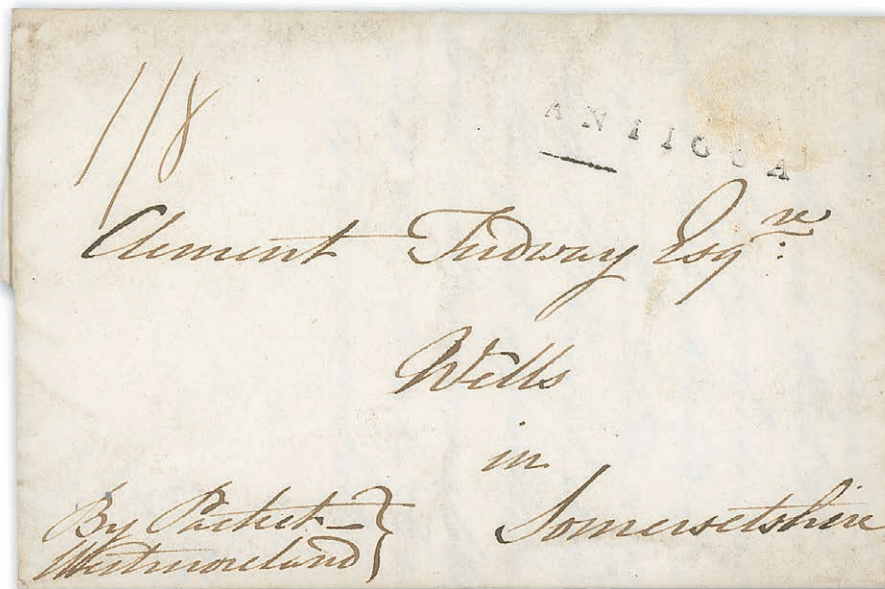 1/8
ANTIGUA
Clement Tudway Esqre:
Wells
in
Somersetshire
By Packet -
Westmoreland